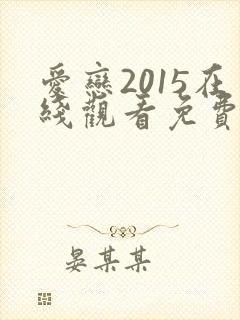 愛戀2015在
綫觀看免費
晏某某